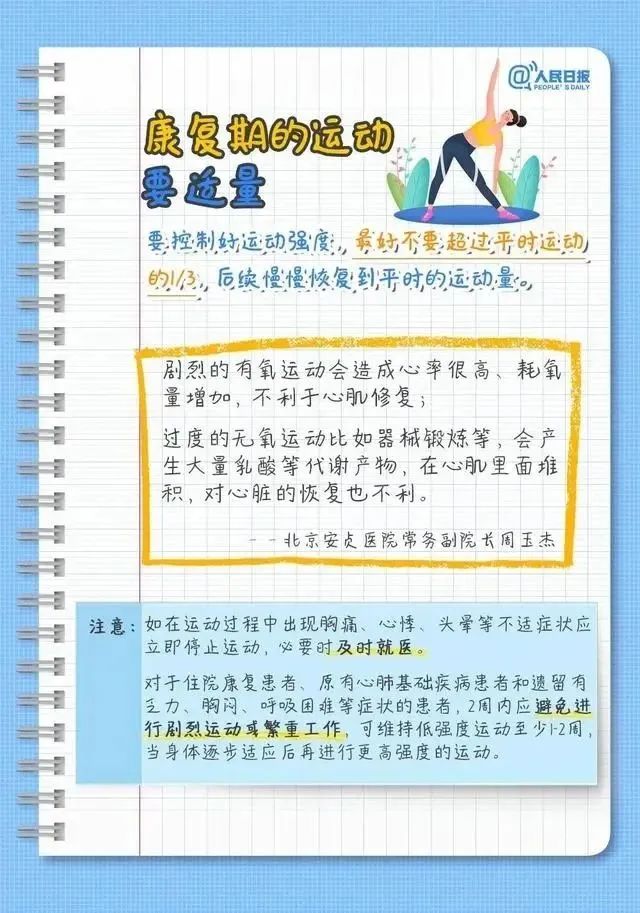 @人民日报
PEOPLE'S DAILY
康复期的运动
要适量
要控制好运动强度，最好不要超过平时运动
的1/3，后续慢慢恢复到平时的运动量。
剧烈的有氧运动会造成心率很高、耗氧
量增加，不利于心肌修复；
过度的无氧运动比如器械锻炼等，会产
生大量乳酸等代谢产物，在心肌里面堆
积，对心脏的恢复也不利。
--北京安贞医院常务副院长周玉杰
注意：如在运动过程中出现胸痛、心悸、头晕等不适症状应
立即停止运动，必要时及时就医。
对于住院康复患者、原有心肺基础疾病患者和遗留有
乏力、胸闷、呼吸困难等症状的患者，2周内应避免进
行剧烈运动或繁重工作，可维持低强度运动至少1-2周，
当身体逐步适应后再进行更高强度的运动。